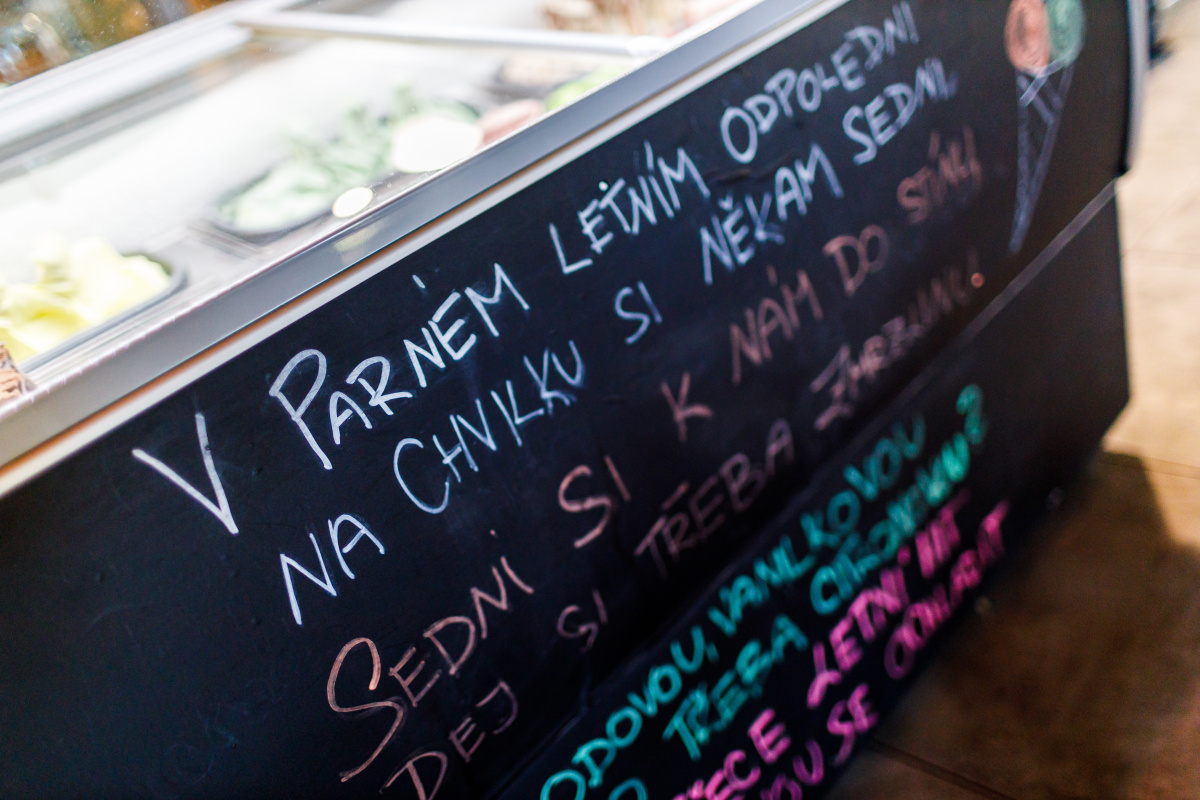 V PARNÉM LETNÍM ODPOLEDNI
NA CHVILKU SI NĚKAM SEDNI.
SEDNI SI K NÁM DO STÍNU
DEJ SI TŘEBA ZMRZLINU.
ODOVOU, VANILKOVOU
TŘEBA CITRONOVOU?
LETNÍ
SE